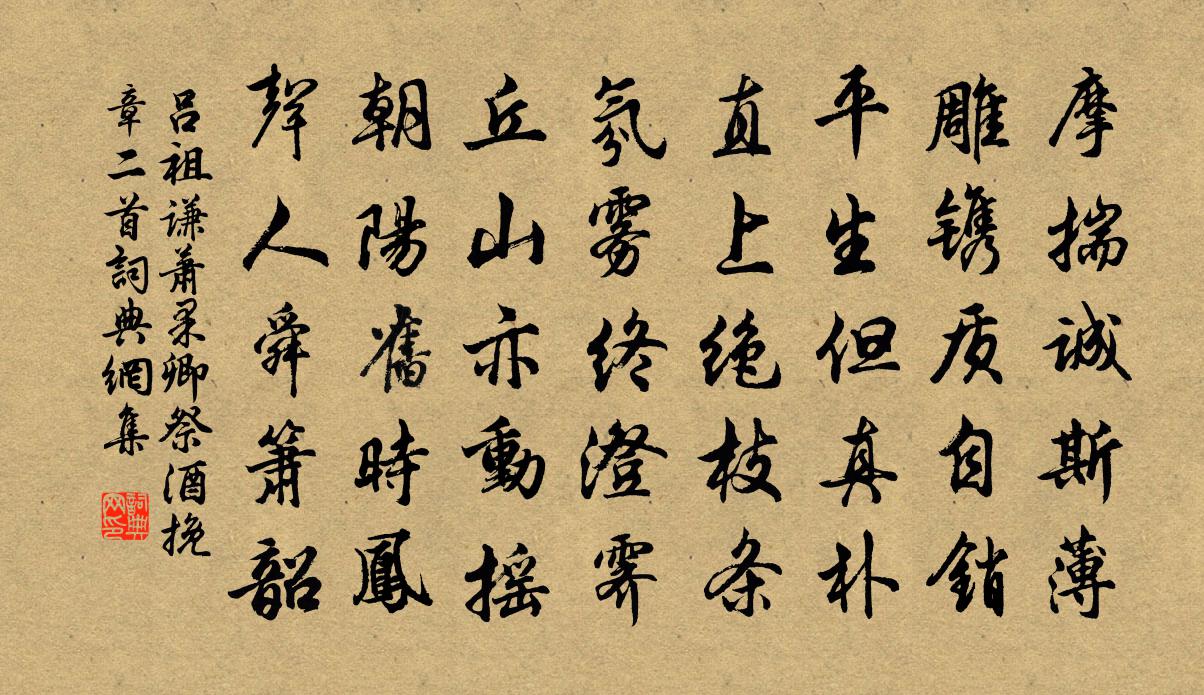 摩揣诚斯薄
雕镌质自銷
平生但真朴
直上绝枝条
氛雾终澄霁
丘山亦動摇
朝陽舊時鳳
聲人舜箫韶
吕祖谦萧柔卿祭酒挽
章二首詞典網集
詞典网印